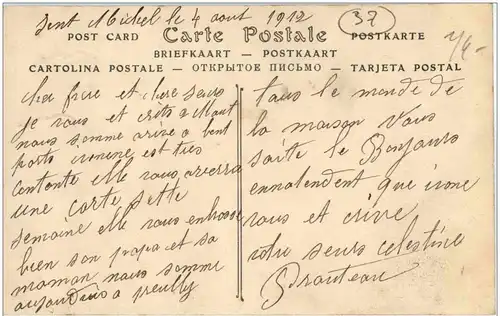 sent Michel le 4 aout 1912
37
POST CARD Carte Postale POSTKARTE
BRIEFKAART — POSTKAART
CARTOLINA POSTALE — ОТКРЫТОЕ ПИСЬМО — TARJETA POSTAL
cher frere et chere seurs
je vous et crits a
nous somme arive a bont
ports irenine est tres
contente elle vous averra
une carte sette
semaine elle vous enbrosse
bien son papa et sa
maman nous somme
aujourdui a preuilly
tous le monde de
la maison vous
saite le Bonjours
ennatendent que irene
vous et crive
votre seurs celestine